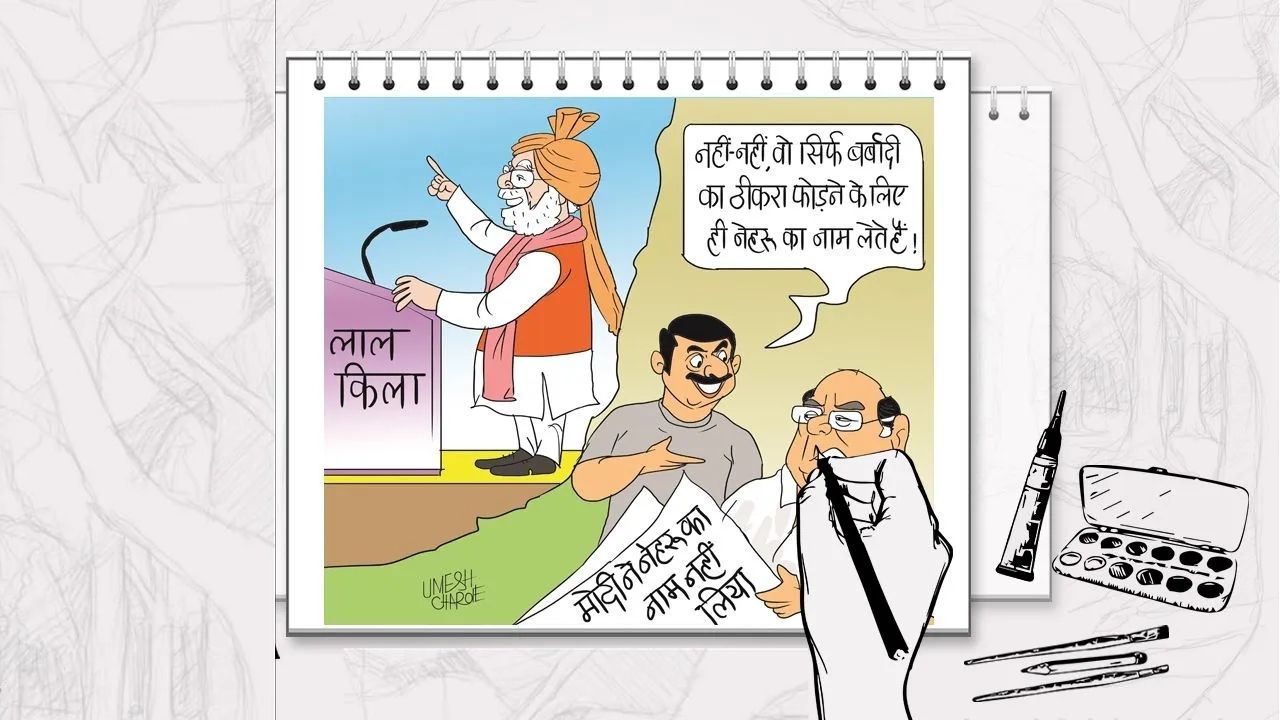 नहीं-नहीं, वो सिर्फ बर्बादी
का ठीकरा फोड़ने के लिए
ही नेहरू का नाम लेते हैं !
लाल
किला
मोदी ने नेहरू का
नाम नहीं
लिया
UMESH
CHARDE